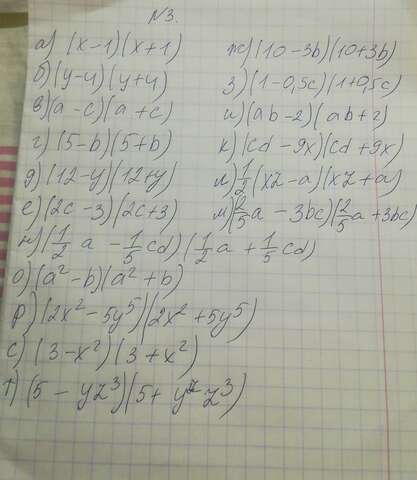 №3.
а) (x-1)(x+1)
б) (y-4)(y+4)
в) (a-c)(a+c)
г) (5-b)(5+b)
д) (12-y)(12+y)
е) (2c-3)(2c+3)
ж) (10-3b)(10+3b)
з) (1-0,5c)(1+0,5c)
и) (ab-2)(ab+2)
к) (cd-9x)(cd+9x)
л) 1/2 (xz-a)(xz+a)
м) (2/5 a - 3bc)(2/5 a + 3bc)
н) (1/2 a - 1/5 cd)(1/2 a + 1/5 cd)
о) (a²-b)(a²+b)
р) (2x²-5y⁵)(2x²+5y⁵)
с) (3-x²)(3+x²)
т) (5-yz³)(5+yz³)